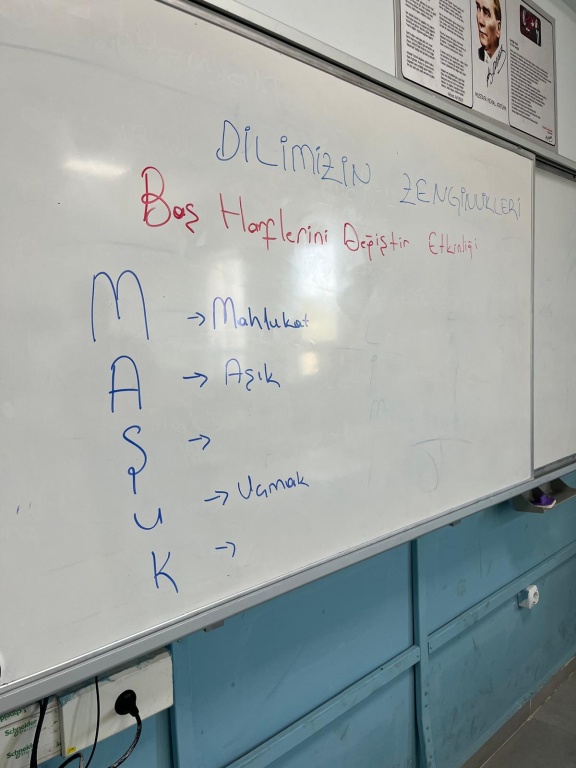 DİLİMİZİN ZENGİNLİKLERİ
Baş Harflerini Değiştir Etkinliği
M → Mahlukat
A → Aşık
Ş →
U → Uçmak
K →
Schneider
Schneider